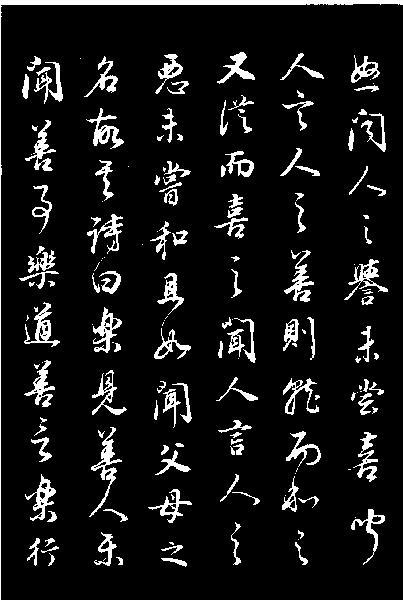 怒聞人之譽未嘗喜聞
人言人之善則就而和之
又從而喜之聞人言人之
惡未嘗和且如聞父母之
名故其詩曰樂見善人樂
聞善事樂道善言樂行